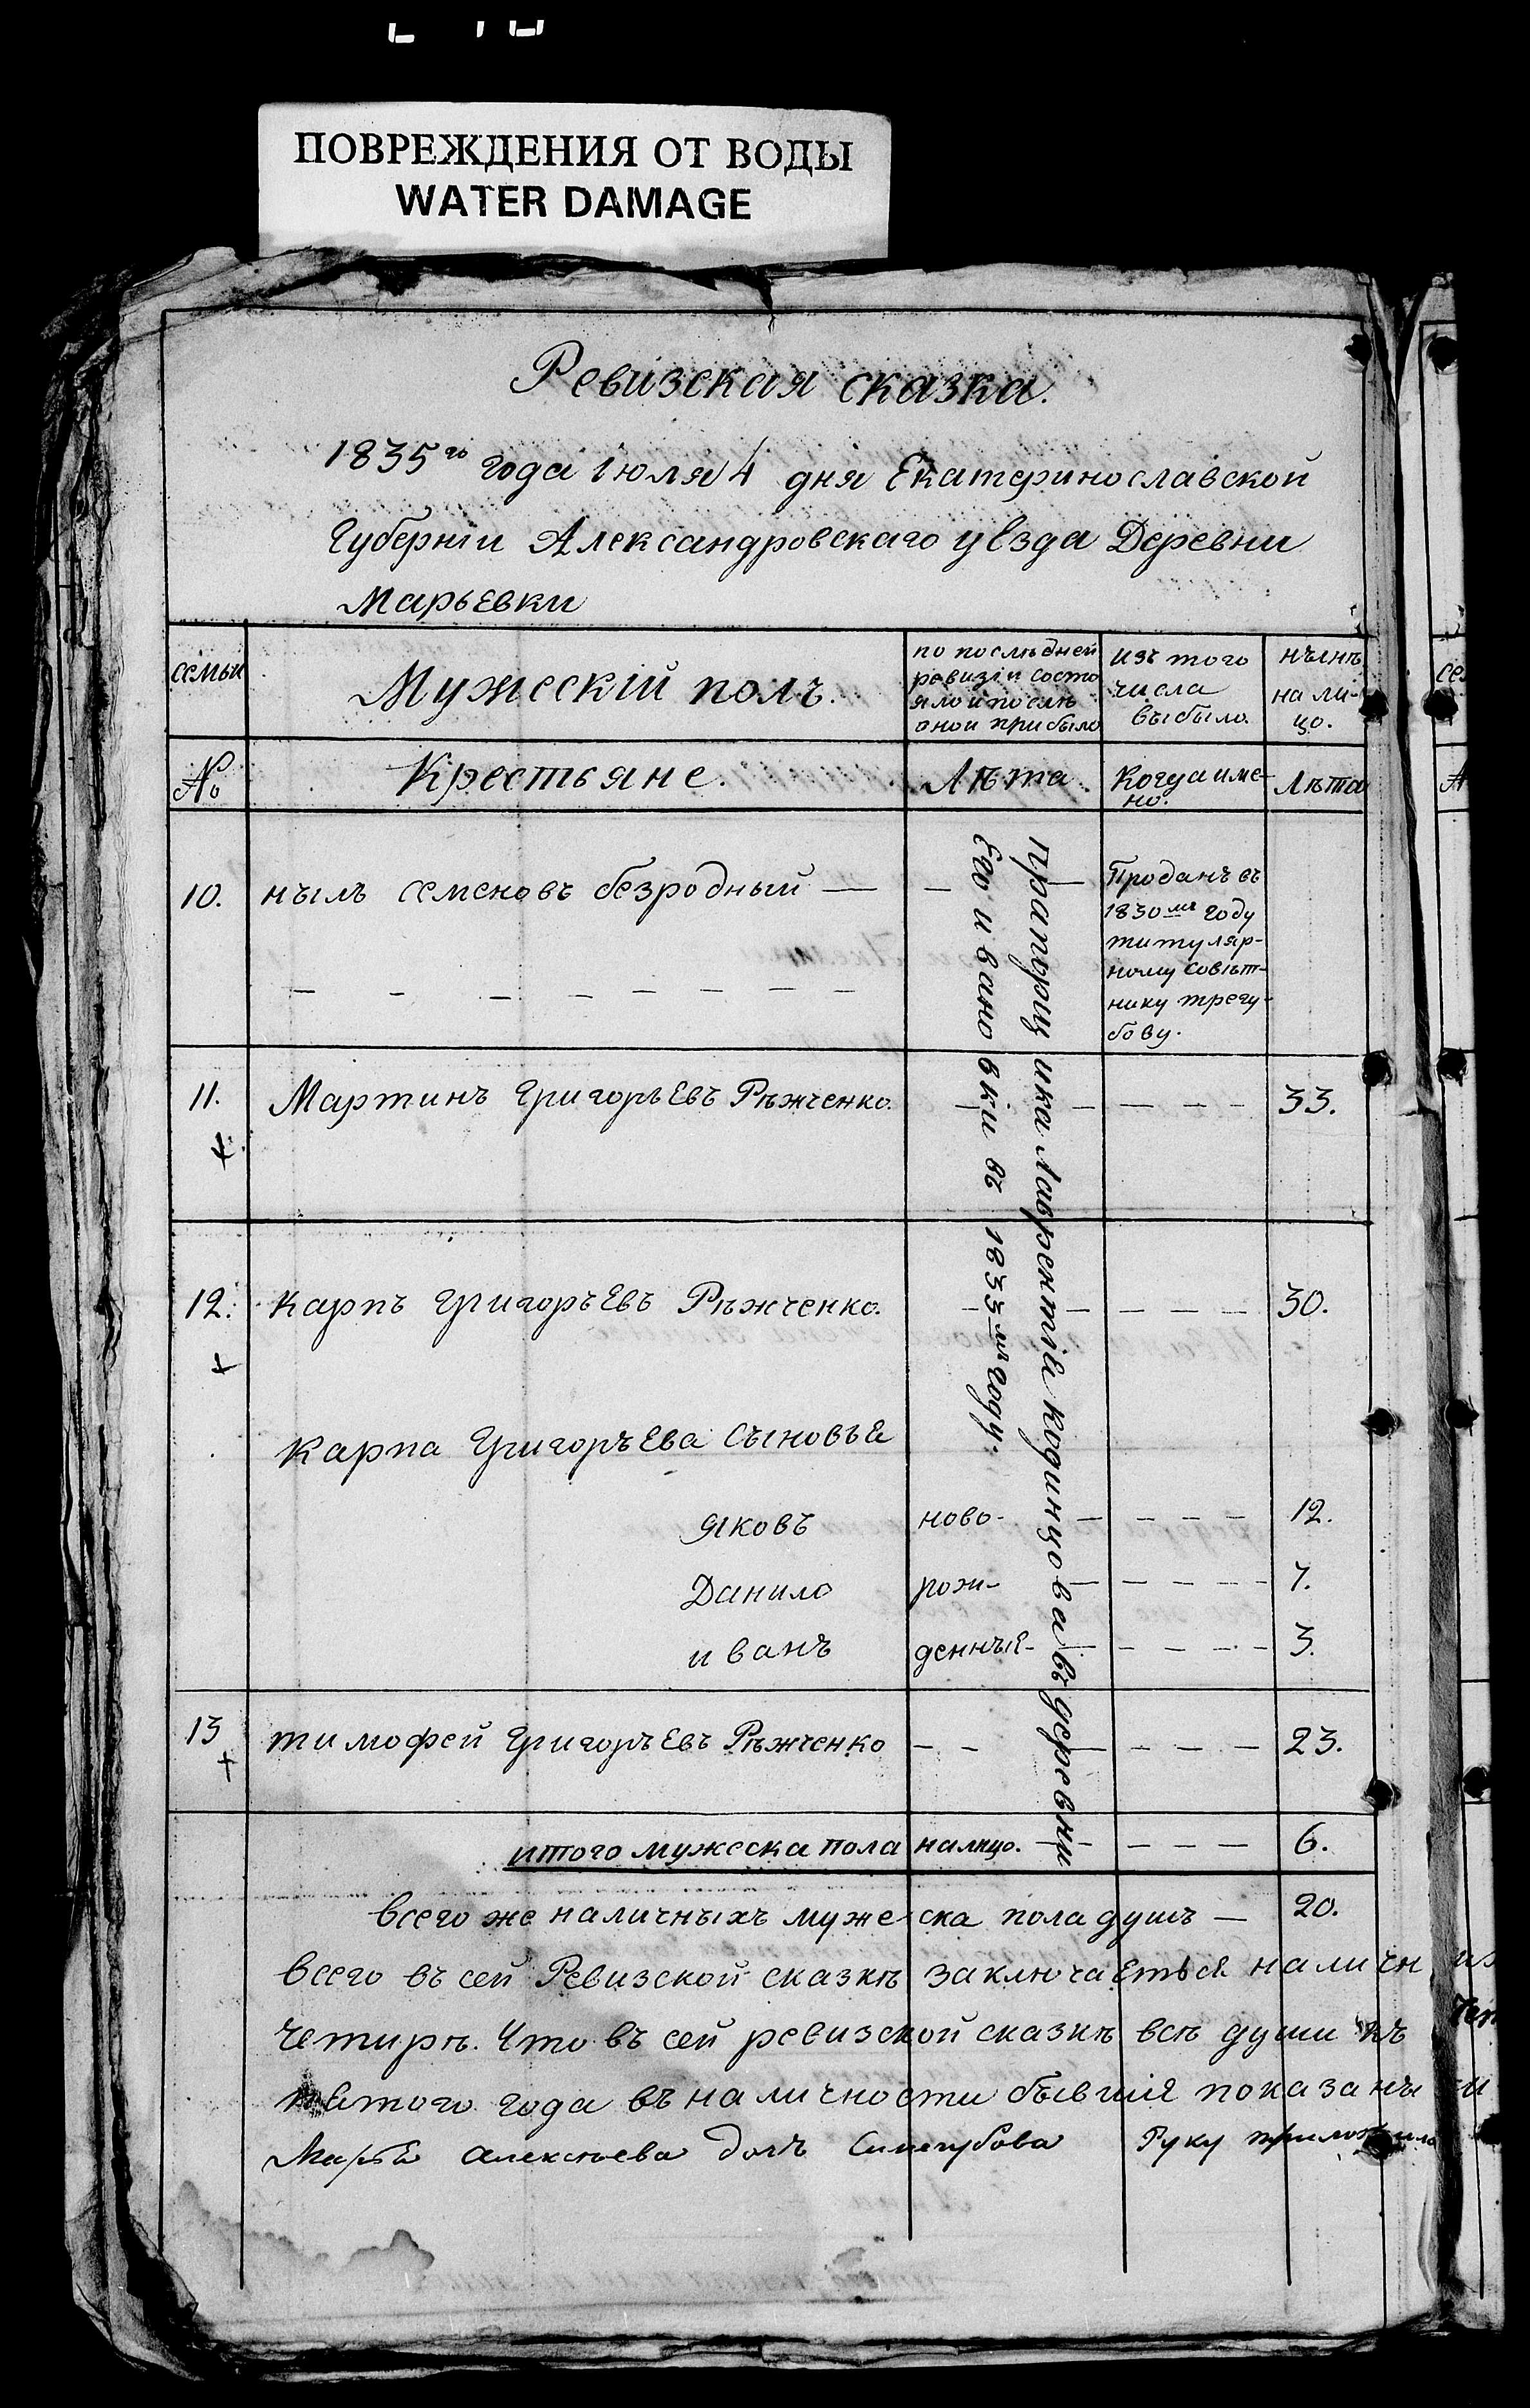 ПОВРЕЖДЕНИЯ ОТ ВОДЫ
WATER DAMAGE
Ревизская сказка.
1835го года iюля 4 дня Екатеринославской
Губернiи Александровскаго уѣзда Деревни
Марьевки
семьи
Мужескiй полъ.
по послѣдней
ревизiи состо
яло и послѣ
оной прибыло
изъ того
числа
выбыло.
нынѣ
на ли-
цо.
№
Крестьяне.
Лѣта
Когда име-
но.
Лѣта
10. нылъ семеновъ безродный — —
Проданъ въ
1830мъ году
титуляр-
ному совѣт-
нику трегу-
бову.
11. Мартинъ Григорьевъ Рѣжченко. — — — — 33.
12. карпъ Григорьевъ Рѣжченко. — — — — 30.
карпа Григорьева сыновья
яковъ ново- — — — — 12.
Данило рож- — — — — 7.
иванъ денные- — — — — 3.
13 тимофей Григорьевъ Рѣжченко — — — — — 23.
Прапорщика Лаврентiя кодинцова въ деревни
Его ивановки въ 1833мъ году.
итого мужеска пола налицо. — — — — 6.
всего же наличныхъ мужеска пола душъ — 20.
всего въ сей Ревизской сказкѣ заключаеться наличн
четирѣ. Что въ сей ревизской сказкѣ всѣ души къ
етого года въ наличности бывшiя показаны и
Марья алексѣева дочь Синегубова Руку приложила